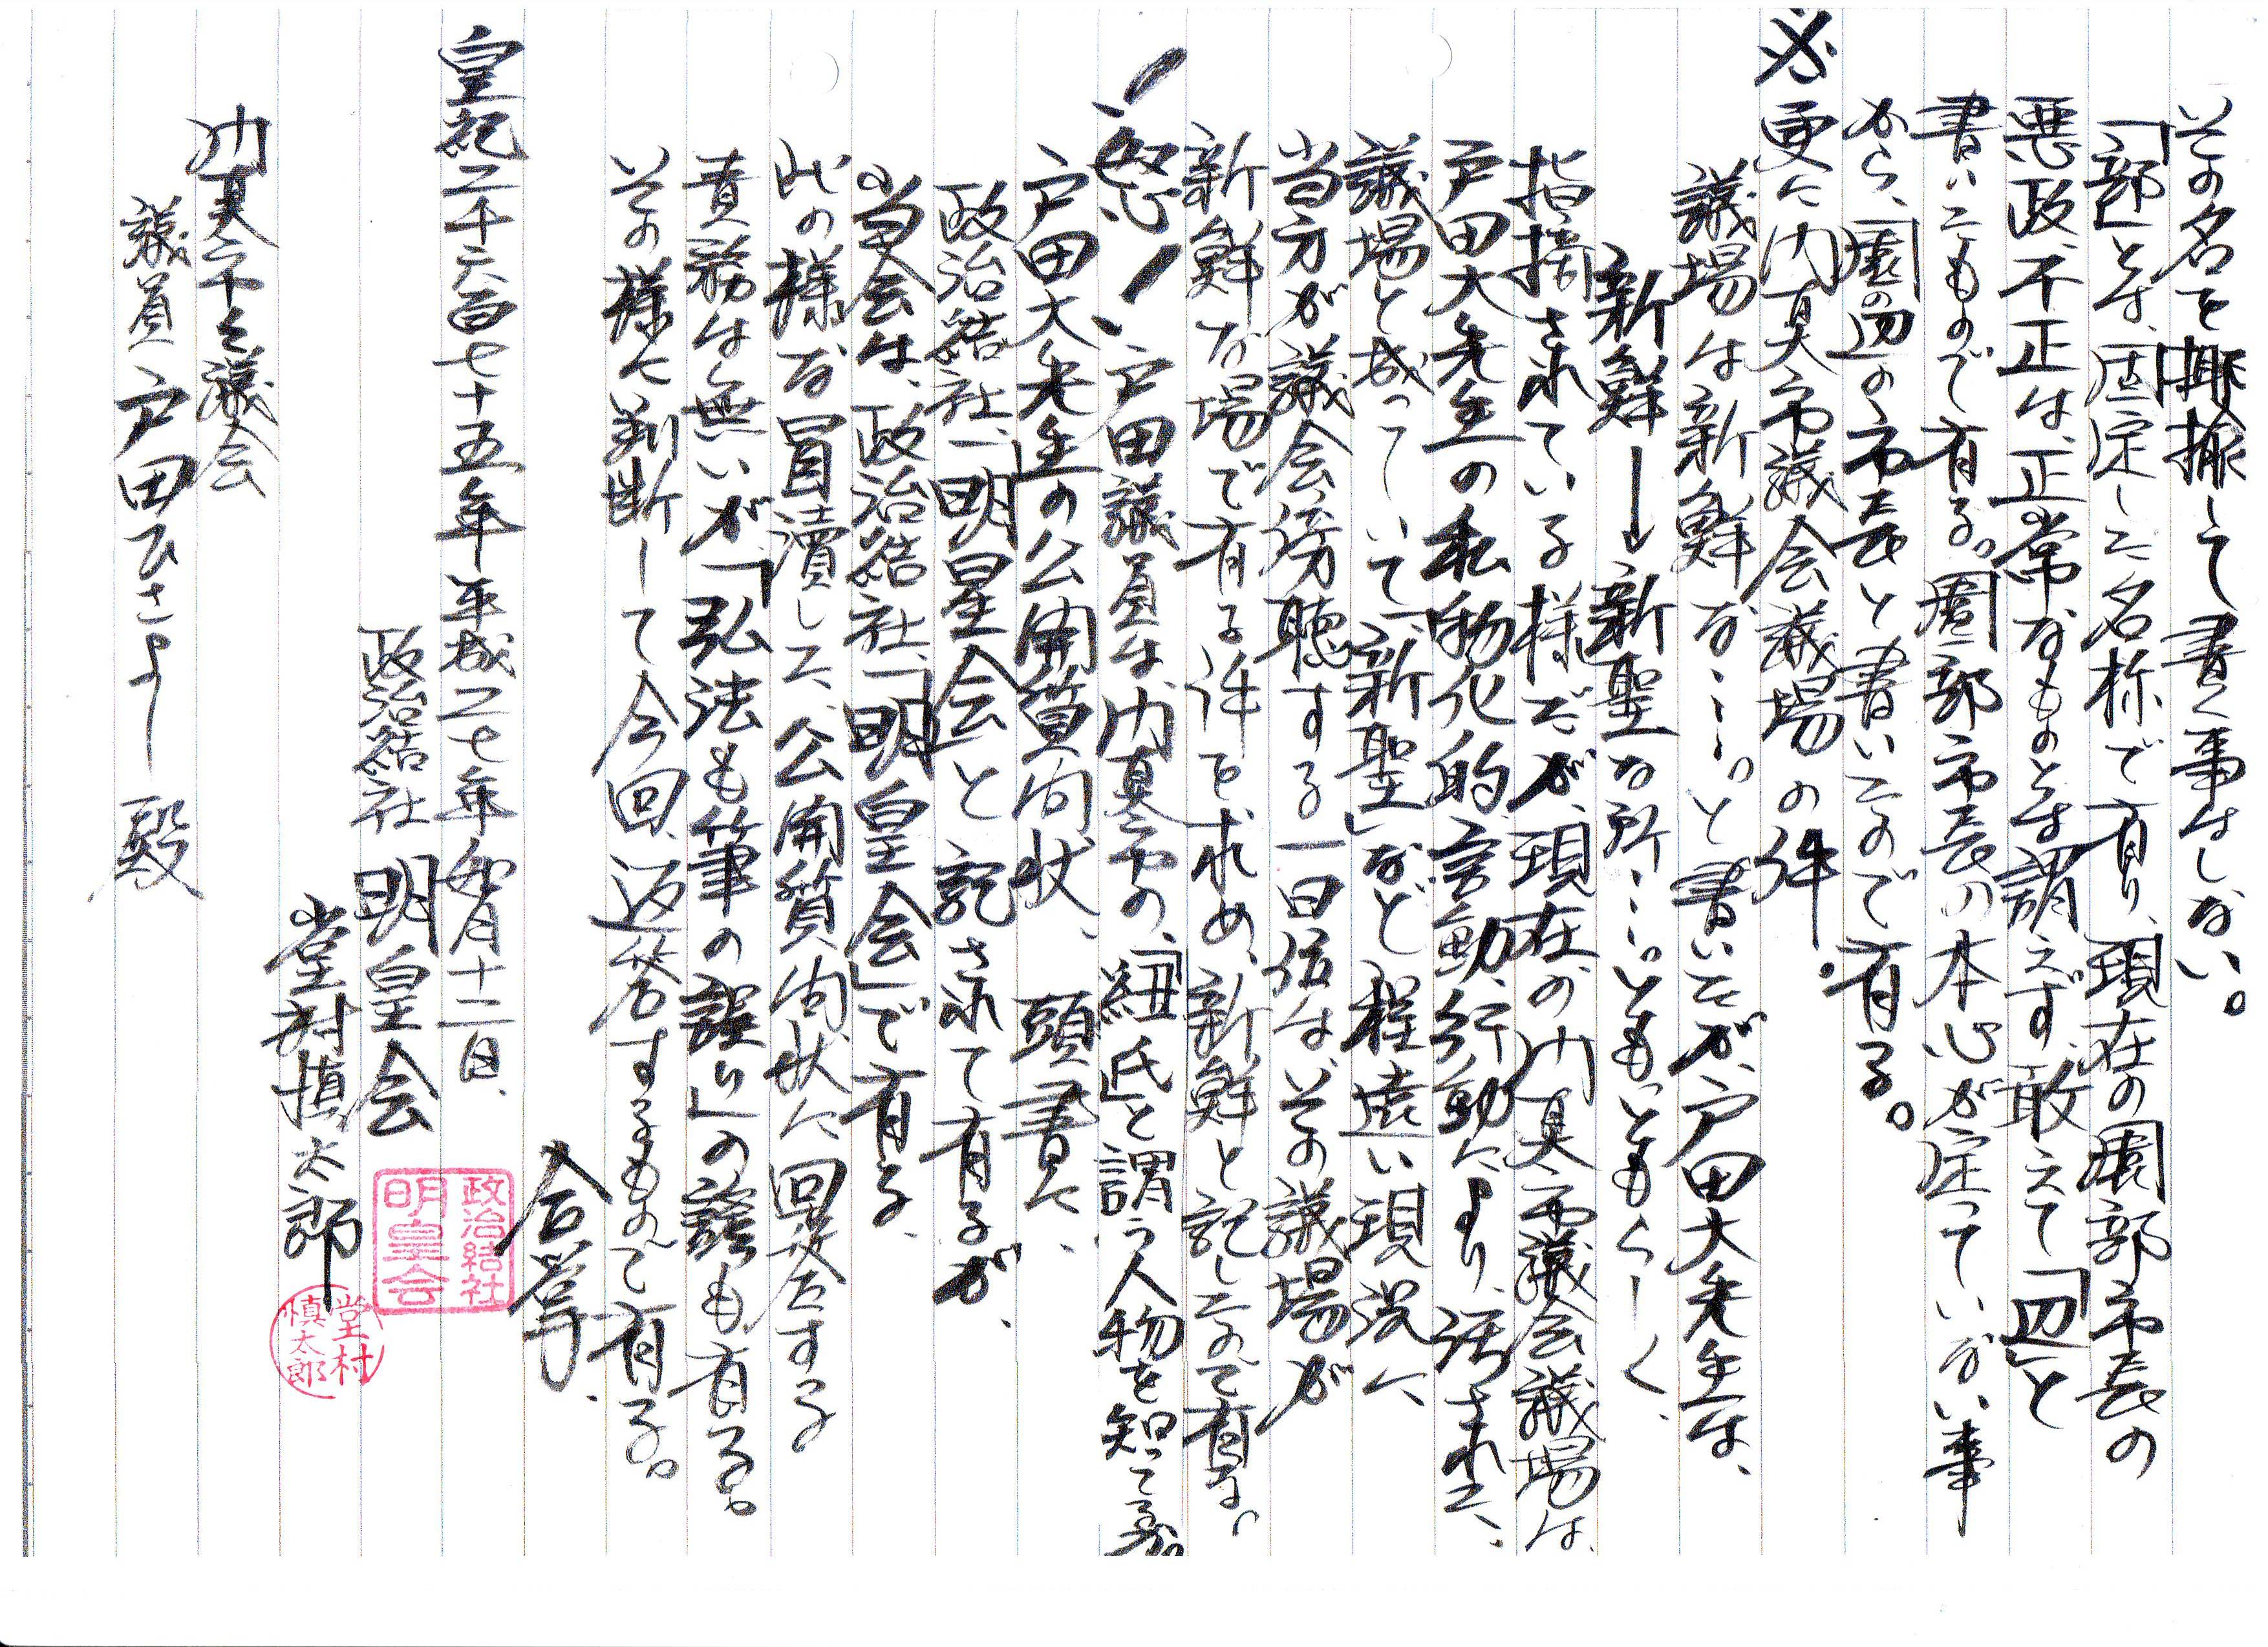 その名を揶揄して書く事はしない。
「部」とは、固定した名称で有り、現在の園部市長の
悪政、不正は、正常なものとは謂えず、敢えて「辺」と
書いたもので有る。園部市長の本心が定っていない事
から、「園の辺」の市長と書いたので有る。
必 更に門真市議会議場の件。
議場は新鮮な……。と書いたが、戸田大先生は、
新鮮→新聖な所……。いともっともらしく、
指摘されている様だが、現在の門真市議会議場は、
戸田大先生の私物化的言動、行動により、汚された、
議場と成っていて、「新聖」など程遠い現況に
当方が議会傍聴する一日位は、その議場が
新鮮な場で有る件を求め、新鮮と記したので有る。
!怒! 戸田議員は、門真市の、「紐氏」と謂う人物を知って居る。
戸田大先生の公開質問状、頭書に、
政治結社、「明星会」と記されて有るが、
当会は、政治結社、「明皇会」で有る、
此の様な冒瀆した、公開質問状に回答する
責務は無いが、「弘法も筆の誤り」の諺も有る。
その様に判断して今回、返答するもので有る。
合掌、
皇紀二千六百七十五年 平成二七年 如月十二日、
政治結社 明皇会
政治結社
明皇会
堂村慎太郎
堂村
慎太郎
門真市々議会
議員 戸田ひさよし 殿